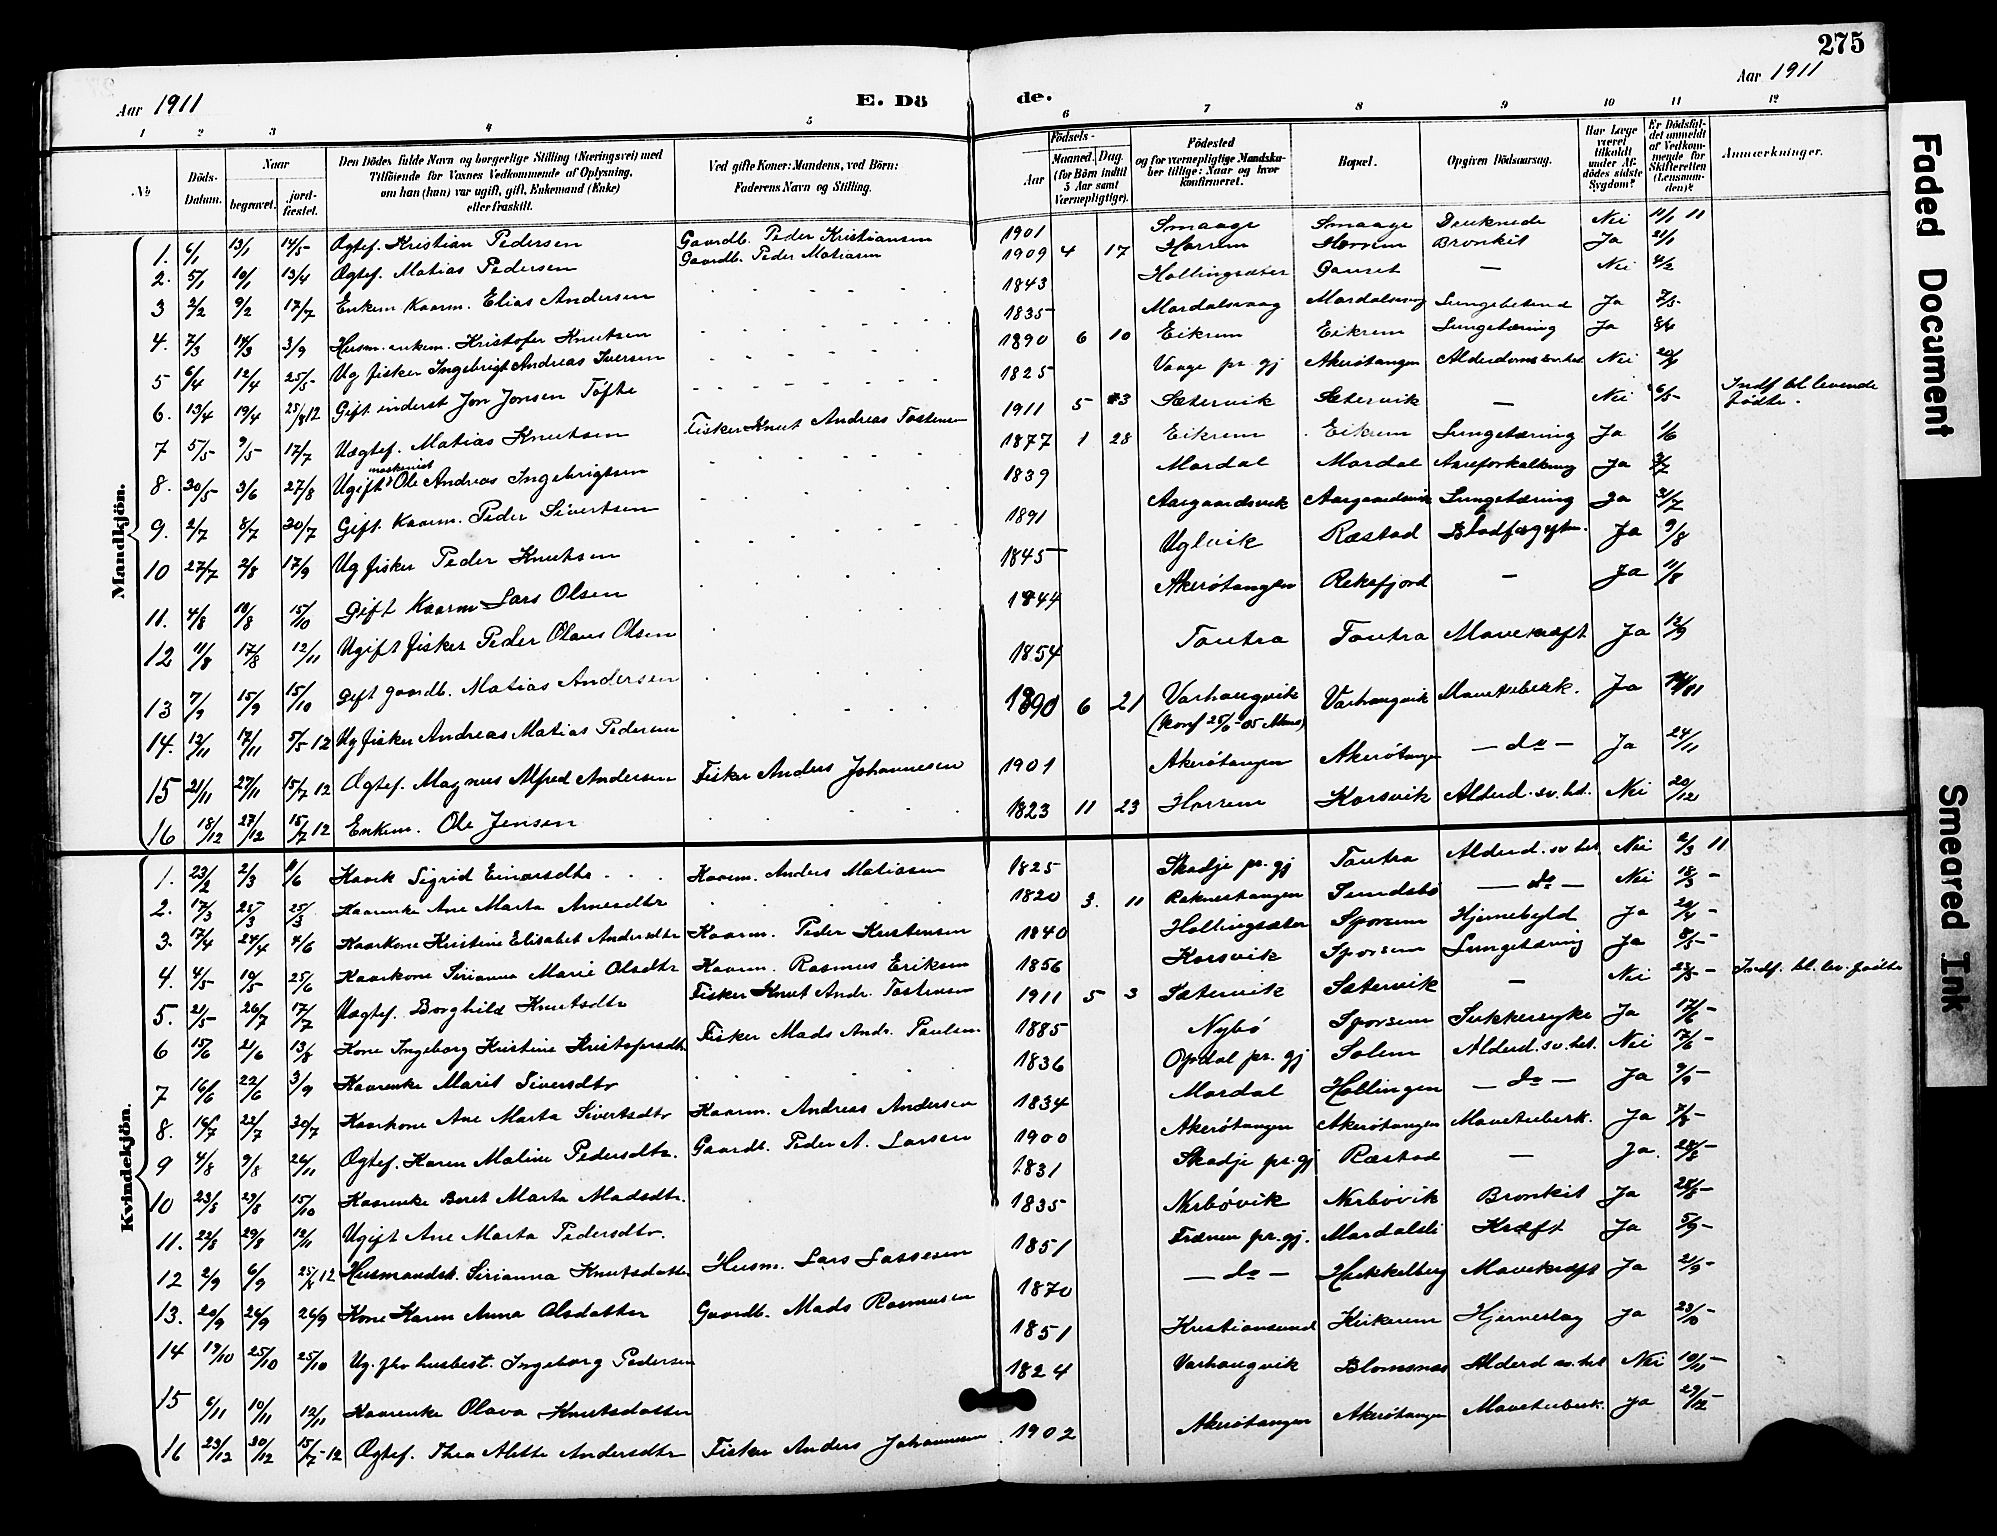 275
Aar 1911
E. Dö
de.
Aar 1911
1 2 3 4 5 6 7 8 9 10 11 12
№
Döds-Datum.
Naar
begravet.
jordfæstet.
Den Dödes fulde Navn og borgerlige Stilling (Næringsvei) med
Tilföiende for Voxnes Vedkommende af Oplysning,
om han (hun) var ugift, gift, Enkemand (Enke)
eller fraskilt.
Ved gifte Koner: Mandens, ved Börn:
Faderens Navn og Stilling.
Födsels-
Aar
Maaned. Dag.
(for Börn indtil
5 Aar samt
Værnepligtige).
Födested
og for værnepligtige Mandskaber tillige: Naar og hvor
konfirmeret.
Bopæl.
Opgiven Dödsaarsag.
Har Læge
været
tilkaldt
under Afdödes sidste
Sygdom?
Er Dödsfaldet anmeldt
af Vedkommende for
Skifteretten
(Lensmanden)?
Anmærkninger.
Mandkjön.
1. 6/1 13/1 14/5 Ogtef. Kristian Pedersen Gaardb. Peder Kristiansen 1901 Smaage Smaage Nei 11/1 11
2. 5/1 10/1 13/4 Ogtef. Matias Pedersen Gaardb. Peder Matiasen 1909 4 17 Harrem Harrem Bronkit Ja 21/1
3 2/2 9/2 17/7 Enkem Kaarm. Elias Andersen 1843 Hollingsæter Gauset — Nei 4/2
4. 7/3 14/3 3/9 Husm. enkem. Kristofer Knutsen 1835 Mordalsvaag Mordalsvaag Ja 7/3
5 6/4 12/4 25/5 Ug fisker Ingebrigt Andreas Iversen 1890 6 10 Eikrem Eikrem Lungetæring Ja 8/4
6. 13/4 19/4 25/8 12 Gift inderst Jon Jonsen Tøfte 1825 Vaage pr. gj Akerøtangen Nei 20/4
7 5/5 9/5 17/7 Uægtef. Matias Knutsen Fisker Knut Andreas Tostensen 1911 5 3 Sætervik Sætervik — Nei 6/5 Indf bl levende fødte.
8. 30/5 3/6 27/8 Ugift maskinist Ole Andreas Ingebrigtsen 1877 1 28 Eikrem Eikrem Lungetæring Ja 1/6
9. 2/7 8/7 30/7 Gift. Kaarm. Peder Sivertsen 1839 Mordal Mordal Aareforkalkning Ja 3/7
10 27/7 2/8 17/9 Ug fisker Peder Knutsen 1891 Aargaardsvik Aargaardsvik Lungetæring Ja 31/7
11. 4/8 10/8 15/10 Gift Kaarm Lars Olsen 1845 Uglvik Ræstad Ja 9/8
12 11/8 17/8 12/11 Ugift fisker Peder Olaus Olsen 1844 Akerøtangen Rekafjord — Ja 11/8
13 7/9 15/9 15/10 Gift gaardb. Matias Andersen 1854 Toutra Toutra Mavekræft Ja 12/9
14. 12/11 17/11 5/5 12 Ug fisker Andreas Matias Pedersen 1890 6 21 Varhaugvik (konf 25/6-05 ) Varhaugvik Mavetuberk. Ja
15 21/11 27/11 15/7 12 Ogtef. Magnus Alfred Andersen Fisker Anders Johannesen 1901 Akerøtangen Akerøtangen — do — Ja 24/11
16 18/12 27/12 15/7 12 Enkem. Ole Jensen 1823 11 23 Harrem Korsvik Alderd. sv. het. Nei 20/12
Kvindekjön.
1. 23/2 2/3 11/6 Kaark Sigrid Einarsdtr Kaarm. Anders Matiasen 1825 Skodje pr. gj Toutra Alderd. sv. het. Nei 2/3 11
2. 17/3 25/3 25/3 Kaarenke Ane Marta Arnesdtr 1820 3. 11 Raknestangen Sundsbø — do — Nei 18/3 -
3. 17/4 24/4 4/6 Kaarkone Kristine Elisabet Andersdtr Kaarm. Peder Kristensen 1840 Hollingsæter Sporsem Hjernebyld Ja 20/4 -
4. 4/5 10/5 25/6 Kaarkone Sirianna Marie Olsdtr Kaarm. Rasmus Eriksen 1856 Korsvik Sporsem Lungetæring Ja 8/5 -
5. 21/5 26/7 17/7 Uægtef. Borghild Knutsdtr Fisker Knut Andr. Tostensen 1911 5 3 Sætervik Sætervik — Nei 23/5 - Indf. bl. lev. fødte
6 15/6 21/6 13/8 Kone Ingeborg Kristine Kristofersdtr Fisker Mads Andr. Paulsen 1885 Nybø Sporsem Sukkersyke Ja 17/6 -
7 16/6 22/6 3/9 Kaarenke Marit Siversdtr 1836 Opdal pr. gj Solem Alderd. sv. het. Nei 17/6 -
8. 14/7 22/7 30/7 Kaarkone Ane Marta Sivertsdtr Kaarm. Andreas Andersen 1834 Mordal Hollingen — do — Ja
9 4/8 9/8 26/11 Ogtef. Karen Maline Pedersdtr. Gaardb. Peder A. Larsen 1900 Akerøtangen Akerøtangen Mavetuberk. Ja 7/8 -
10 23/8 29/8 15/10 Kaarenke Beret Marta Madsdtr. 1831 Skodje pr. gj Ræstad — Ja. 28/8 -
11. 22/8 29/8 12/11 Ugift Ane Marta Pedersdtr. 1835 Nerbøvik Nerbøvik Bronkit Ja 28/8 -
12 2/9 6/9 25/5 12 Husmandsk. Sirianna Knutsdatter Husm. Lars Lassesen 1851 Frænen pr. gj. Mordalsli Kræft Ja 5/9 -
13. 20/9 26/9 26/9 Kone Karen Anna Olsdatter Gaardb. Mads Rasmusen 1870 — do — Mavekræft Ja 21/9 -
14 19/10 25/10 25/10 Ug. fhv husbest. Ingeborg Pedersen 1851 Kristiansund Hjerneslag Ja 23/10 -
15 6/11 10/11 12/11 Kaarenke Olava Knutsdatter 1824 Varhaugvik Blomsnes Alderd sv. het Nei 10/11 -
16 23/12 30/12 15/7-12 Ogtef. Thea Alette Andersdtr Fisker Anders Johannesen 1902 Akerøtangen Akerøtangen Mavetuberk. Ja 29/12 -
Faded Document
Smeared Ink